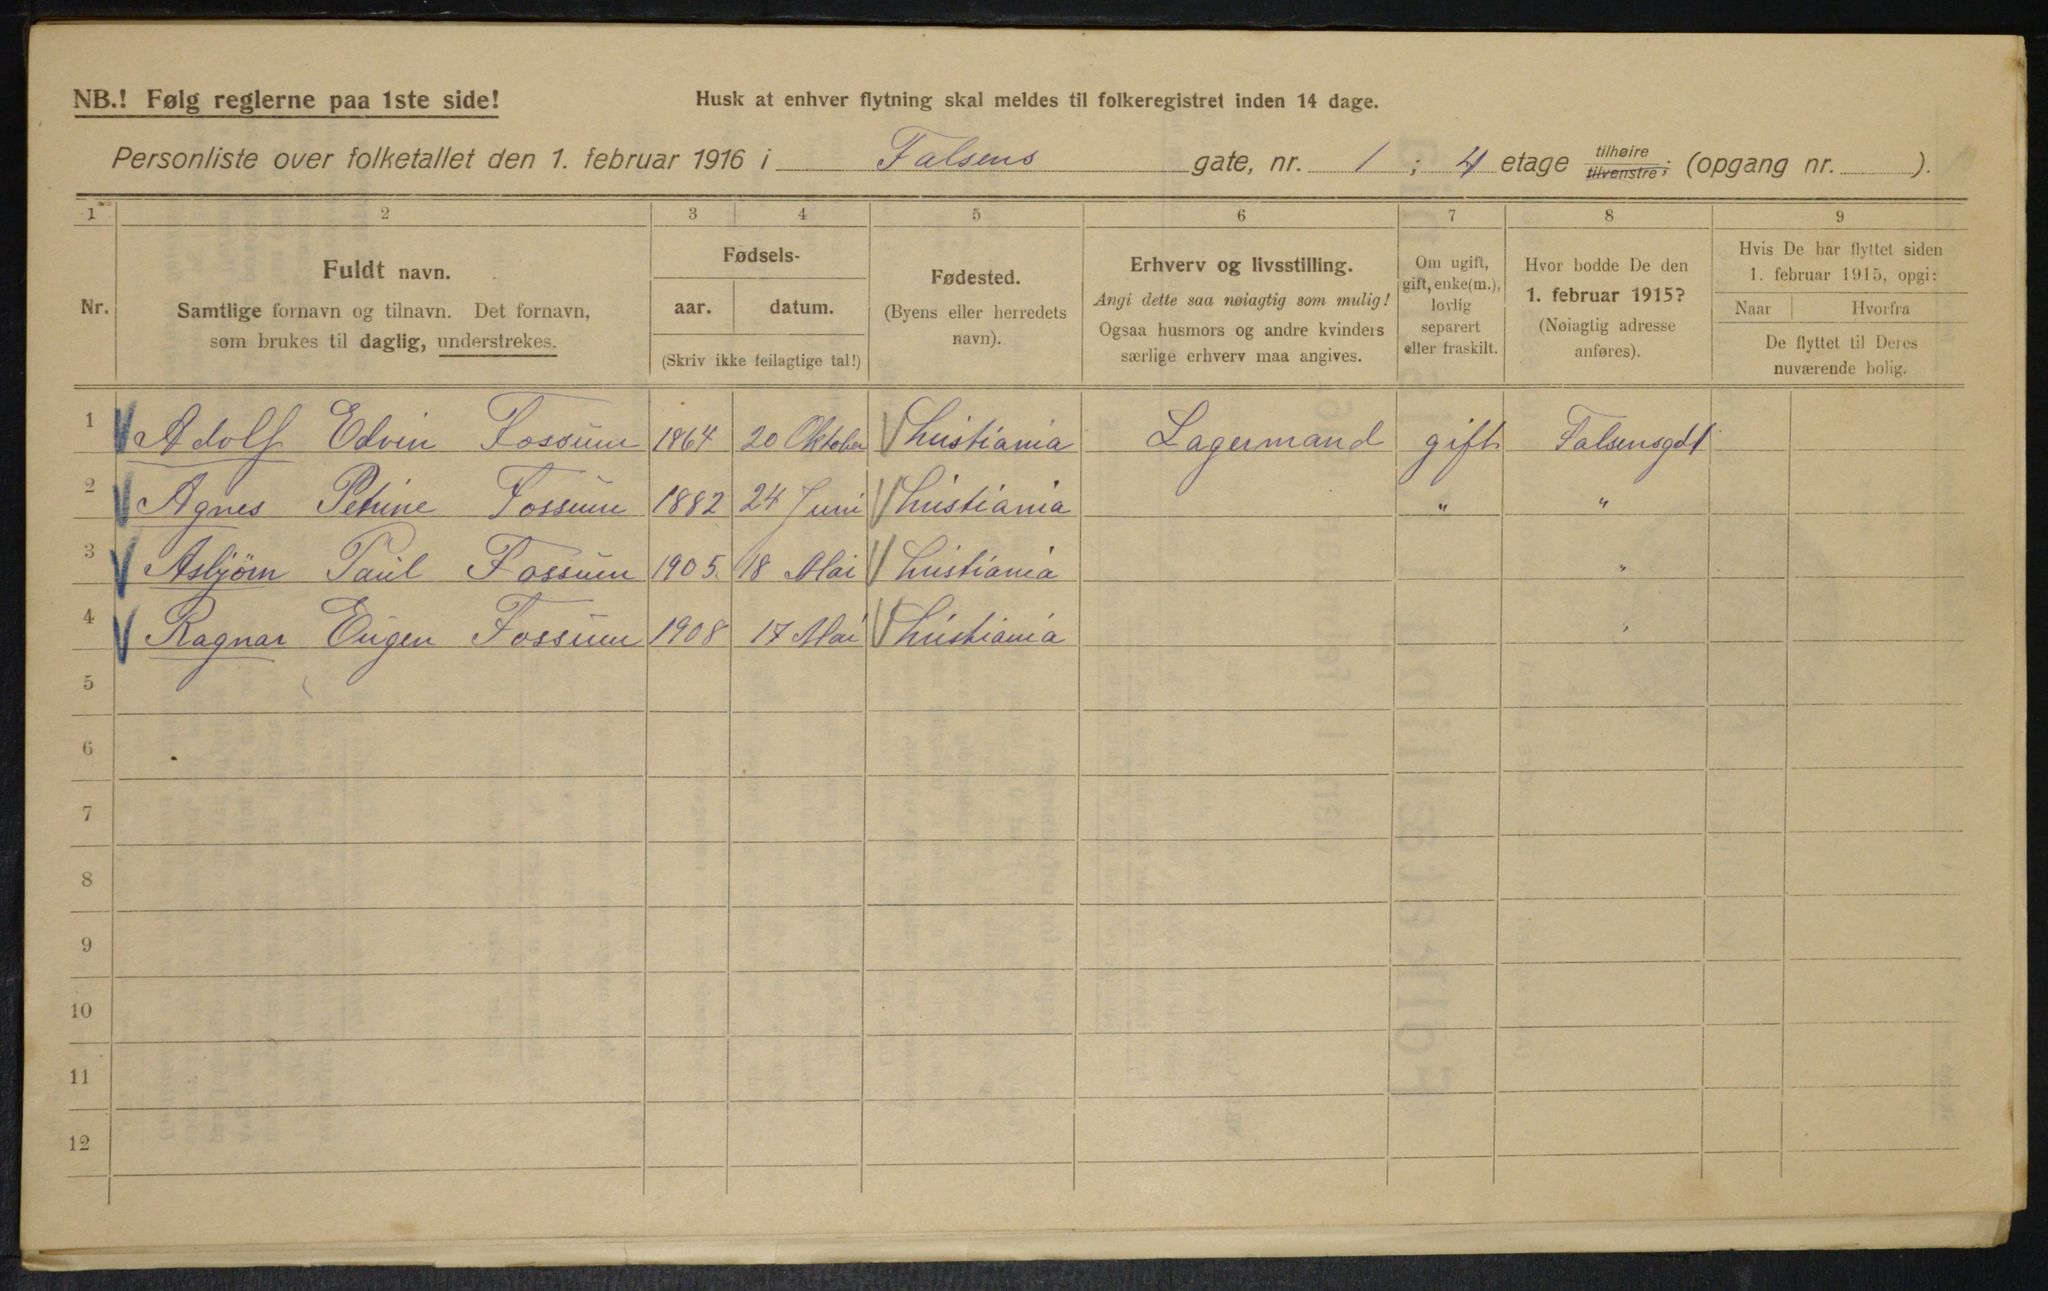 NB.! Følg reglerne paa 1ste side! Husk at enhver flytning skal meldes til folkeregistret inden 14 dage.
Personliste over folketallet den 1. februar 1916 i Falsens gate, nr. 1 ; 4 etage tilhøire tilvenstre; (opgang nr. ).
1 2 3 4 5 6 7 8 9
Nr.
Fuldt navn.
Samtlige fornavn og tilnavn. Det fornavn,
som brukes til daglig, understrekes.
Fødsels-
aar. datum.
(Skriv ikke feilagtige tal!)
Fødested.
(Byens eller herredets
navn).
Erhverv og livsstilling.
Angi dette saa nøiagtig som mulig!
Ogsaa husmors og andre kvinders
særlige erhverv maa angives.
Om ugift,
gift, enke(m.),
lovlig
separert
eller fraskilt.
Hvor bodde De den
1. februar 1915?
(Nøiagtig adresse
anføres).
Hvis De har flyttet siden
1. februar 1915, opgi:
Naar Hvorfra
De flyttet til Deres
nuværende bolig.
1 Adolf Edvin Fossum 1864 20 Oktober Christiania Lagermand gift Falsensgt 1
2 Agnes Petrine Fossum 1882 24 Juni Christiania " "
3 Asbjørn Paul Fossum 1905. 18 Mai Christiania "
4 Ragnar Eugen Fossum 1908 17 Mai Christiania "
5
6
7
8
9
10
11
12